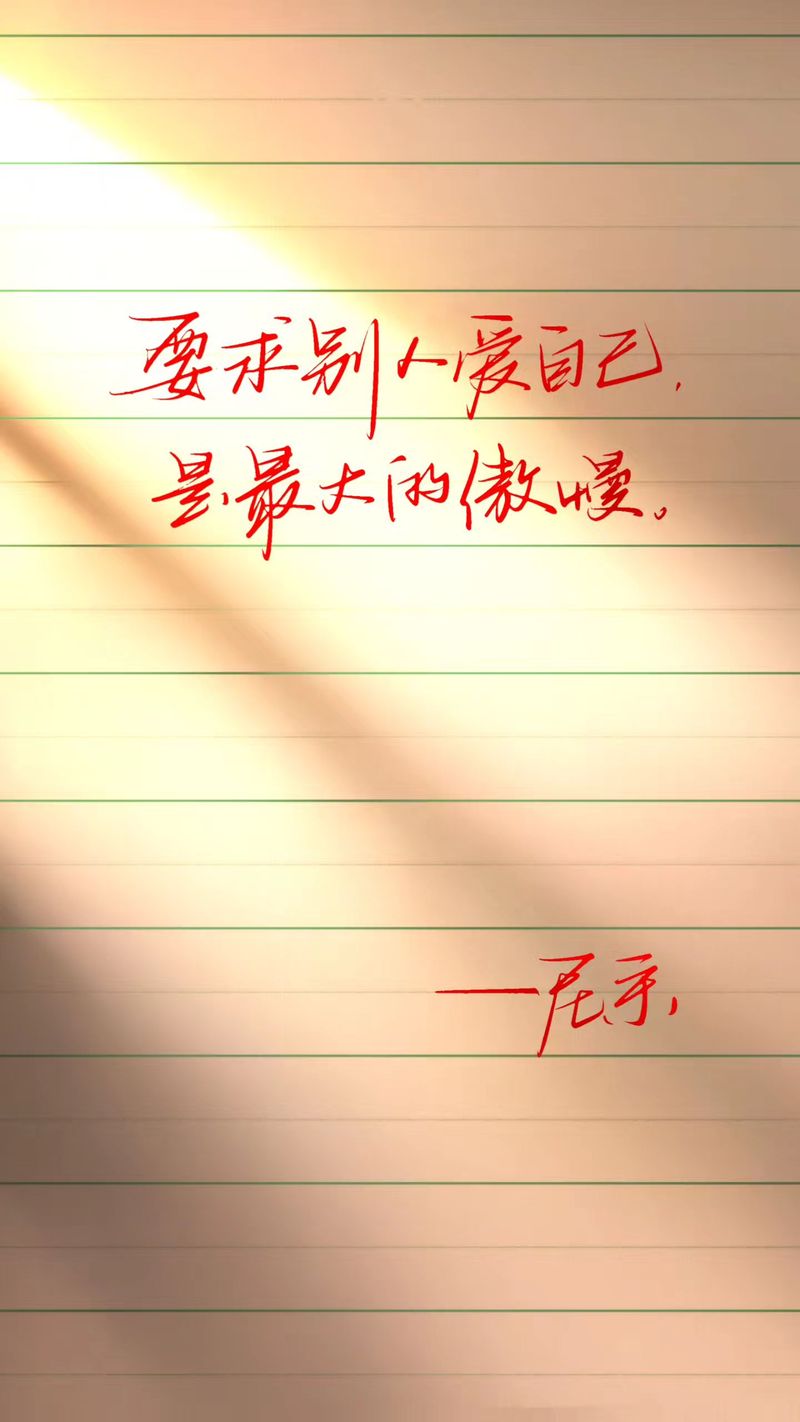 要求别人爱自己,
是最大的傲慢。
——尼采